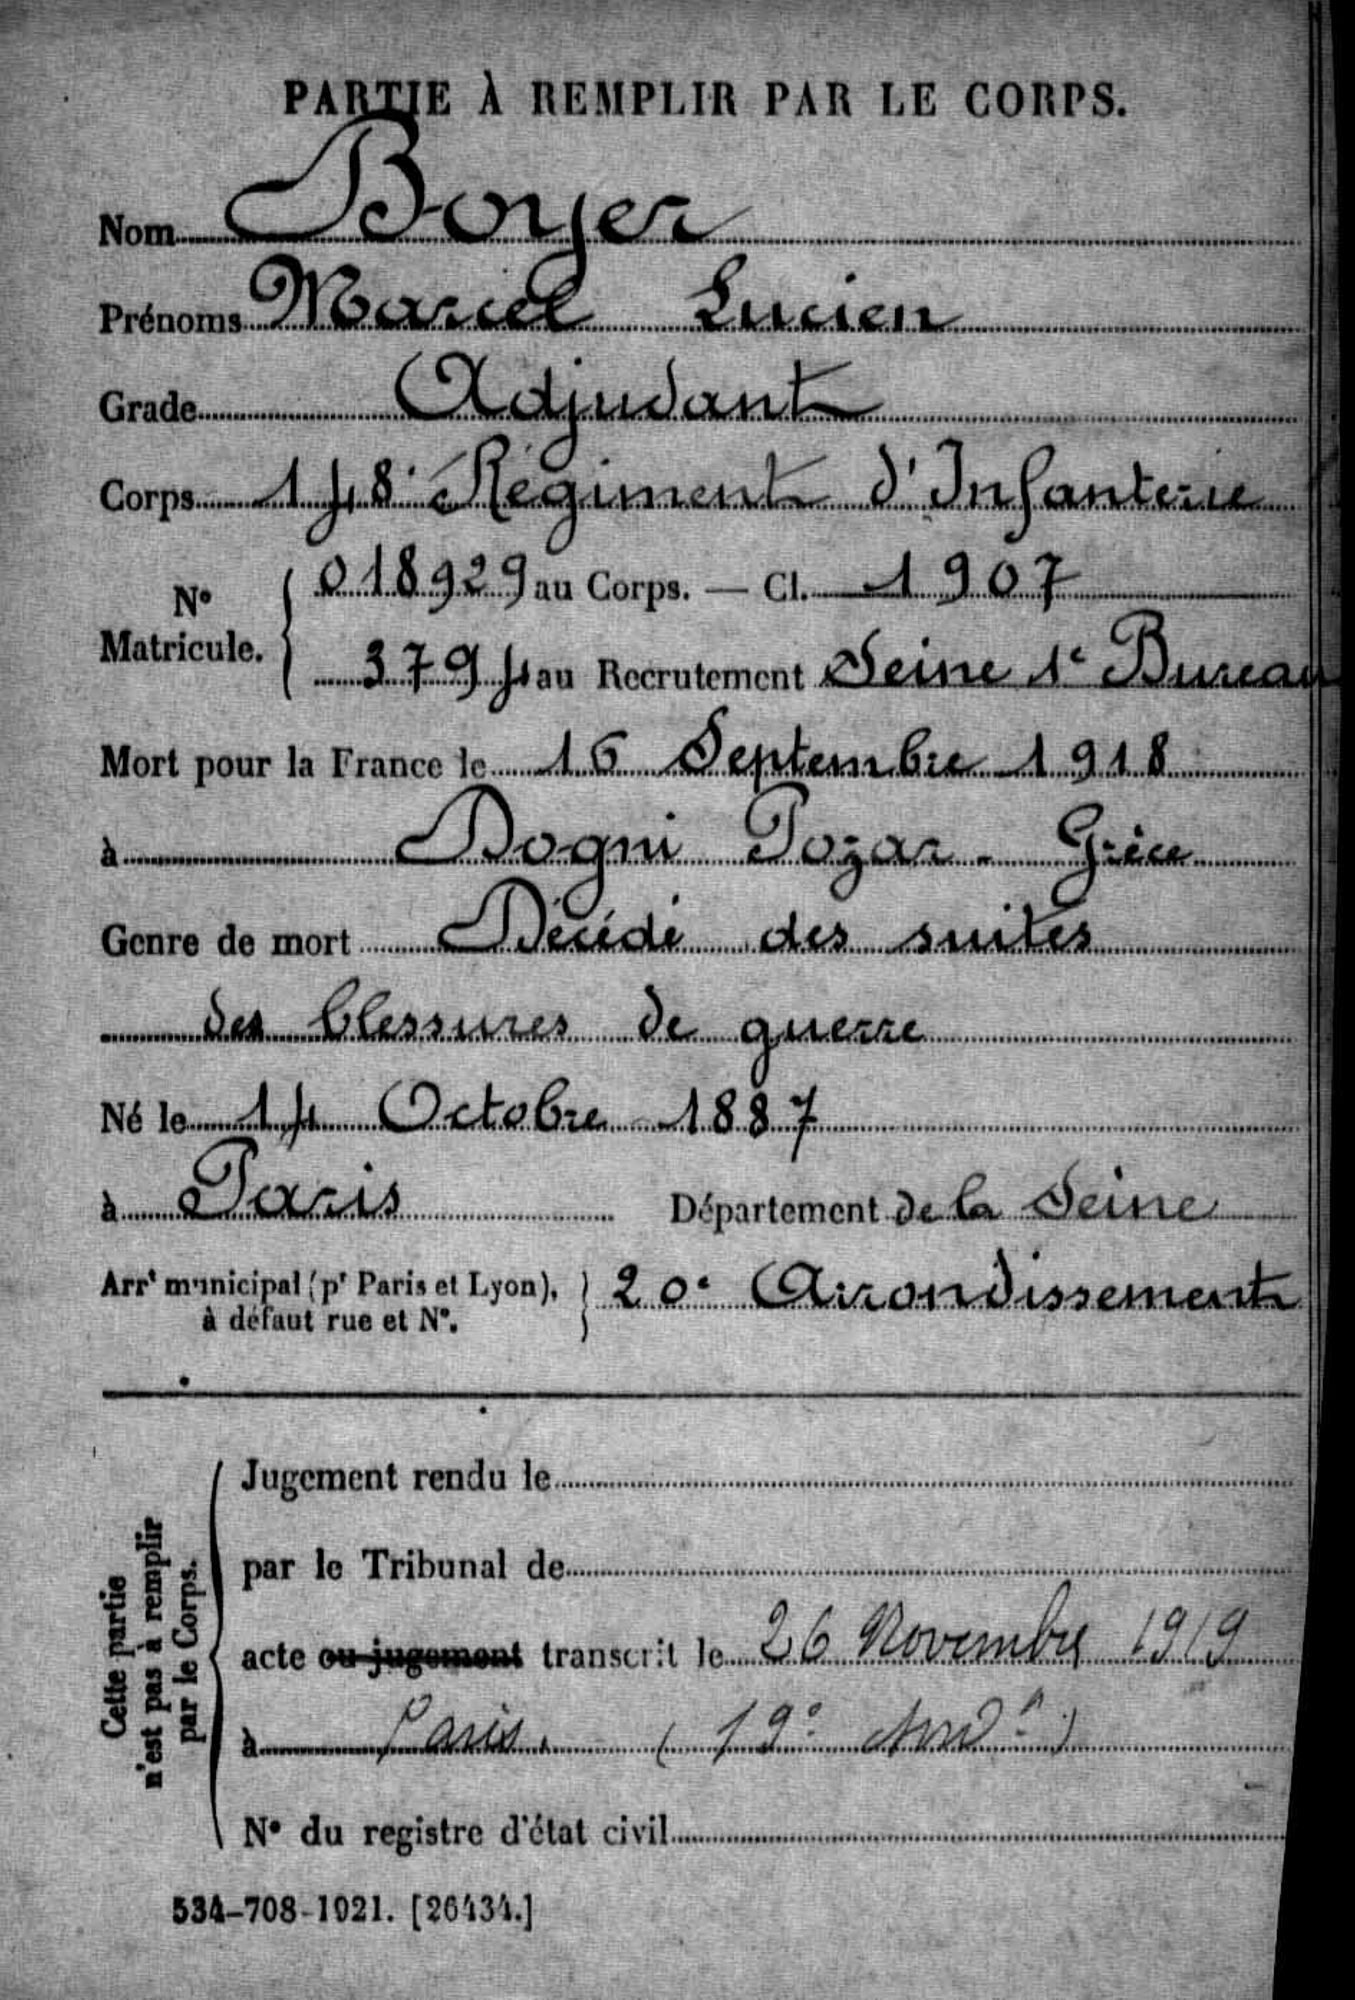 PARTIE À REMPLIR PAR LE CORPS.
Nom Boyer
Prénoms Marcel Lucien
Grade Adjudant
Corps 148e Régiment d'Infanterie
No Matricule. 018929 au Corps. — Cl. 1907
3794 au Recrutement Seine 1e Bureau
Mort pour la France le 16 Septembre 1918
à Dogni Pozar - Grèce
Genre de mort Décédé des suites
des blessures de guerre
Né le 14 Octobre 1887
à Paris Département de la Seine
Arrt municipal (pr Paris et Lyon), 20e Arrondissement
à défaut rue et No.
Cette partie
n'est pas à remplir
par le Corps.
Jugement rendu le
par le Tribunal de
acte ou jugement transcrit le 26 Novembre 1919
à Paris. (19e Arrdt)
No du registre d'état civil
534-708-1921. [26434.]